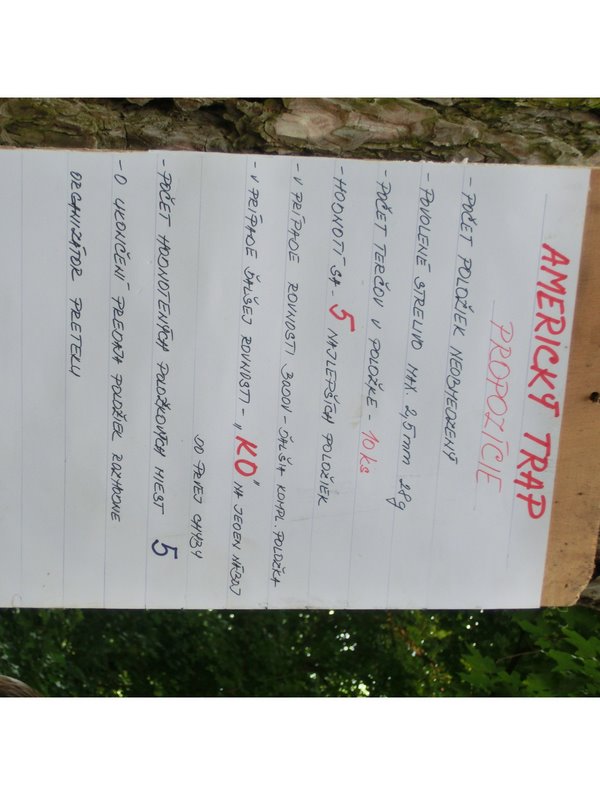 AMERICKÝ TRAP
PROPOZÍCIE
- POČET POLOŽIEK NEOBMEDZENÝ
- POVOLENÉ STRELIVO MAX. 2,5mm 28g
- POČET TERČOV V POLOŽKE - 10 ks
- HODNOTÍ SA - 5 NAJLEPŠÍCH POLOŽIEK
- V PRÍPADE ROVNOSTI BODOV - ĎALŠIA KOMPL. POLOŽKA
- V PRÍPADE ĎALŠEJ ROVNOSTI - „KO" NA JEDEN NÁBOJ
DO PRVEJ CHYBY
- POČET HODNOTENÝCH POLOŽKOVÝCH MIEST 5
- O UKONČENÍ PREDAJA POLOŽIEK ROZHODNE
ORGANIZÁTOR PRETEKU